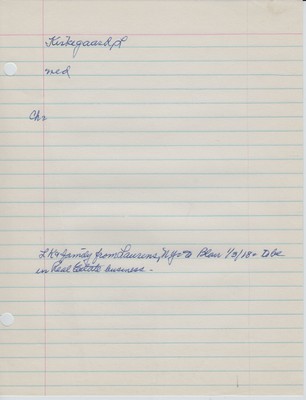 Kirkegaard, L
med
Ch:
L K & family from Laurens, NY to Blair 1/3/18 - to be
in Real Estate business -